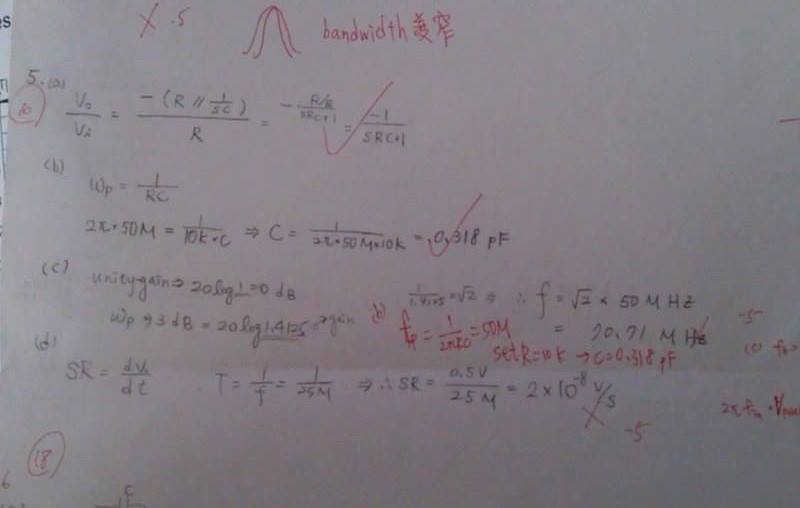 X -5
bandwidth 變窄
5.(a) Vo/Vi = -(R // 1/SC)/R = -(R/R)/(SRC+1) = -1/(SRC+1)
(b) Wp = 1/RC
2π·50M = 1/(10k·C) ⇒ C = 1/(2π·50M·10k) = 0.318 pF
(c) unity-gain ⇒ 20log1 = 0 dB
Wp → 3 dB = 20log1.4125 gain
= √2 ⇒ ∴ f = √2 × 50 MHz
= 70.71 MHz
-5
(b) fp = 1/2πRC = 50M
set R=10k → C=0.318 pF
(d)
SR = dVo/dt
T = 1/f = 1/25M ⇒ ∴ SR = 0.5V/25M = 2×10⁻⁸ V/s
X -5
18
6
C